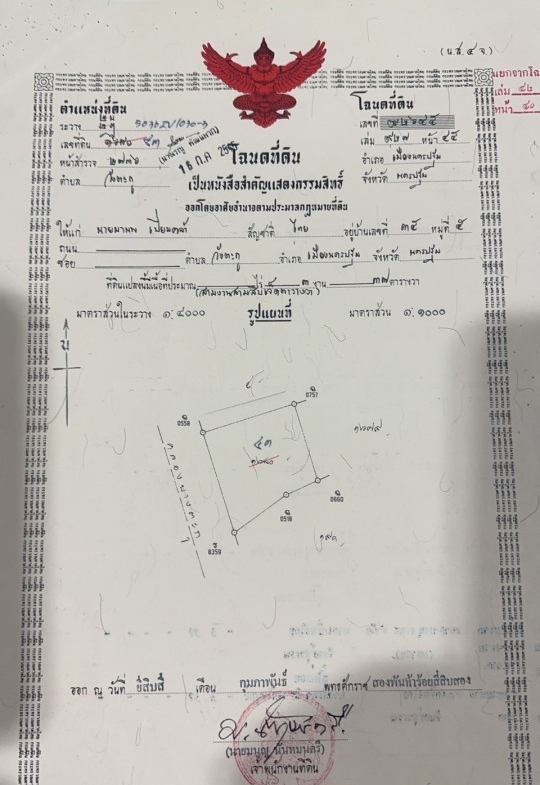 (น.ส.๔ จ.)
แยกจากโฉ
เล่ม ๔๒
หน้า ๔๐
ตำแหน่งที่ดิน
ระวาง
เลขที่ดิน ๔๓
หน้าสำรวจ ๒๗๗๖
ตำบล วังตะกู
๑๕ ก.ค.
โฉนดที่ดิน
เลขที่
เล่ม ๙๒๗ หน้า ๔๕
อำเภอ เมืองนครปฐม
จังหวัด นครปฐม
โฉนดที่ดิน
เป็นหนังสือสำคัญแสดงกรรมสิทธิ์
ออกโดยอาศัยอำนาจตามประมวลกฎหมายที่ดิน
ให้แก่ นายมานพ สัญชาติ ไทย อยู่บ้านเลขที่ ๓๕ หมู่ที่ ๕
ถนน
ซอย ตำบล วังตะกู อำเภอ เมืองนครปฐม จังหวัด นครปฐม
ที่ดินแปลงนี้มีเนื้อที่ประมาณ ไร่ ๓ งาน ๓๗ ตารางวา
(สามงานสามสิบเจ็ดตารางวา)
มาตราส่วนในระวาง ๑:๔๐๐๐ รูปแผนที่ มาตราส่วน ๑:๑๐๐๐
น
0558
0757
๔๓
๑๖๗๙
คลองยางตะกู
0660
0518
8359
๑๙๓
ออก ณ วันที่ ยี่สิบสี่ เดือน กุมภาพันธ์ พุทธศักราช สองพันห้าร้อยสี่สิบสอง
(นายมนูญ นันทมนตรี)
เจ้าพนักงานที่ดิน